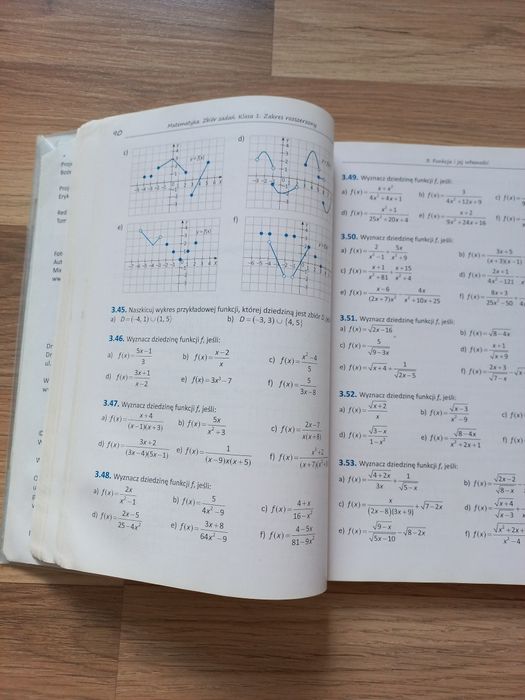 90
Matematyka. Zbiór zadań. Klasa 1. Zakres rozszerzony
c)
y=f(x)
d)
e)
y=f(x)
f)
3.45. Naszkicuj wykres przykładowej funkcji, której dziedziną jest zbiór D,
a) D=(−4, 1)∪(1, 5)
b) D=(−3, 3)∪(4, 5)
3.46. Wyznacz dziedzinę funkcji f, jeśli:
a) f(x)=(5x−1)/3
b) f(x)=(x−2)/x
c) f(x)=(x²−4)/5
d) f(x)=(3x+1)/(x−2)
e) f(x)=3x²−7
f) f(x)=5/(3x−8)
3.47. Wyznacz dziedzinę funkcji f, jeśli:
a) f(x)=(x+4)/((x−1)(x+3))
b) f(x)=5x/(x²+3)
c) f(x)=(2x−7)/(x(x+8))
d) f(x)=(3x+2)/((3x−4)(5x−1))
e) f(x)=1/((x−9)(x+5))
f) f(x)=(x²+2)/((x+7)
3.48. Wyznacz dziedzinę funkcji f, jeśli:
a) f(x)=2x/(x²−1)
b) f(x)=5/(4x²−9)
c) f(x)=(4+x)/(16−x²)
d) f(x)=(2x−5)/(25−4x²)
e) f(x)=(3x+8)/(64x²−9)
f) f(x)=(4−5x)/(81−9x²)
3. Funkcja i jej własności
3.49. Wyznacz dziedzinę funkcji f, jeśli:
a) f(x)=(x+x²)/(4x²−4x+1)
b) f(x)=3/(4x²−12x+9)
c) f(x)=
d) f(x)=(x²+1)/(25x²+20x+4)
e) f(x)=(x+2)/(9x²+24x+16)
f) f(x)=
3.50. Wyznacz dziedzinę funkcji f, jeśli:
a) f(x)=2/(x²−1)−5x/(x²+9)
b) f(x)=(3x+5)/((x+3)(x−1)
c) f(x)=(x+1)/(x²+81)+(x+15)/(x²+4)
d) f(x)=(2x+1)/(4x²−121)
e) f(x)=(x−6)/((2x+7)x²)−4x/(x²+10x+25)
f) f(x)=(8x+3)/(25x²−50
3.51. Wyznacz dziedzinę funkcji f, jeśli:
a) f(x)=√(2x−16)
b) f(x)=√(8−4x)
c) f(x)=5/√(9−3x)
d) f(x)=(x+1)/√(x+9)
e) f(x)=√(x+4)+1/√(2x−5)
f) f(x)=(2x+3)/√(7−x)
3.52. Wyznacz dziedzinę funkcji f, jeśli:
a) f(x)=√(x+2)/x
b) f(x)=√(x−3)/(x²−9)
d) f(x)=√(3−x)/(1−x²)
e) f(x)=√(8−4x)/(x²+2x+1)
3.53. Wyznacz dziedzinę funkcji f, jeśli:
a) f(x)=√(4+2x)/3x+1/√(5−x)
b) f(x)=√(2x−2)
c) f(x)=x/((2x−8)(3x+9))+√(7−2x)
d) f(x)=√(x+4)/√(x−3)
e) f(x)=√(9−x)/√(5x−10)−√(8−2x)
f) f(x)=√(x²+2x+)/(x²−4)